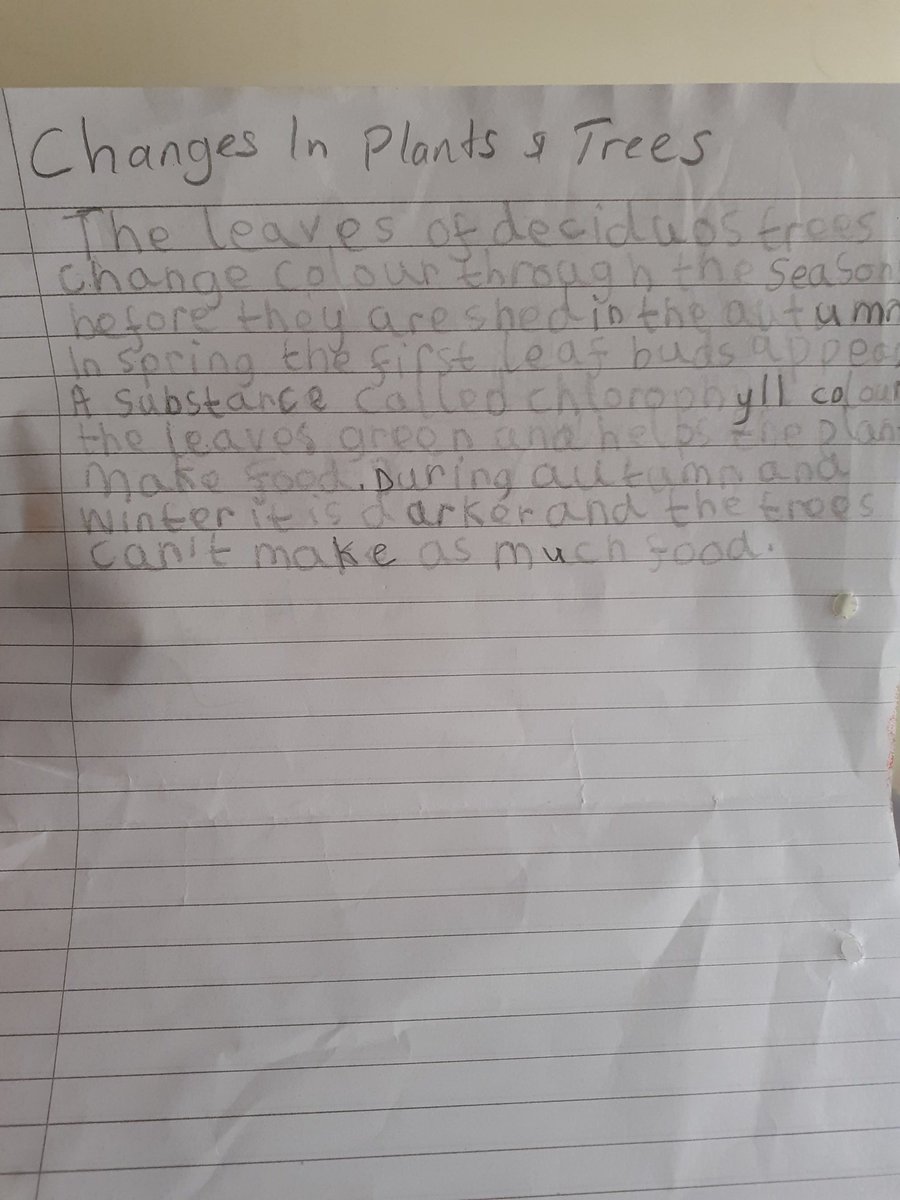 Changes In Plants & Trees
The leaves of deciduos trees
change colour through the Season
before they are shed in the autumn
In spring the first leaf buds appear
A substance called chlorophyll colour
the leaves green and helps the plant
make food. During autumn and
winter it is darker and the trees
can't make as much food.